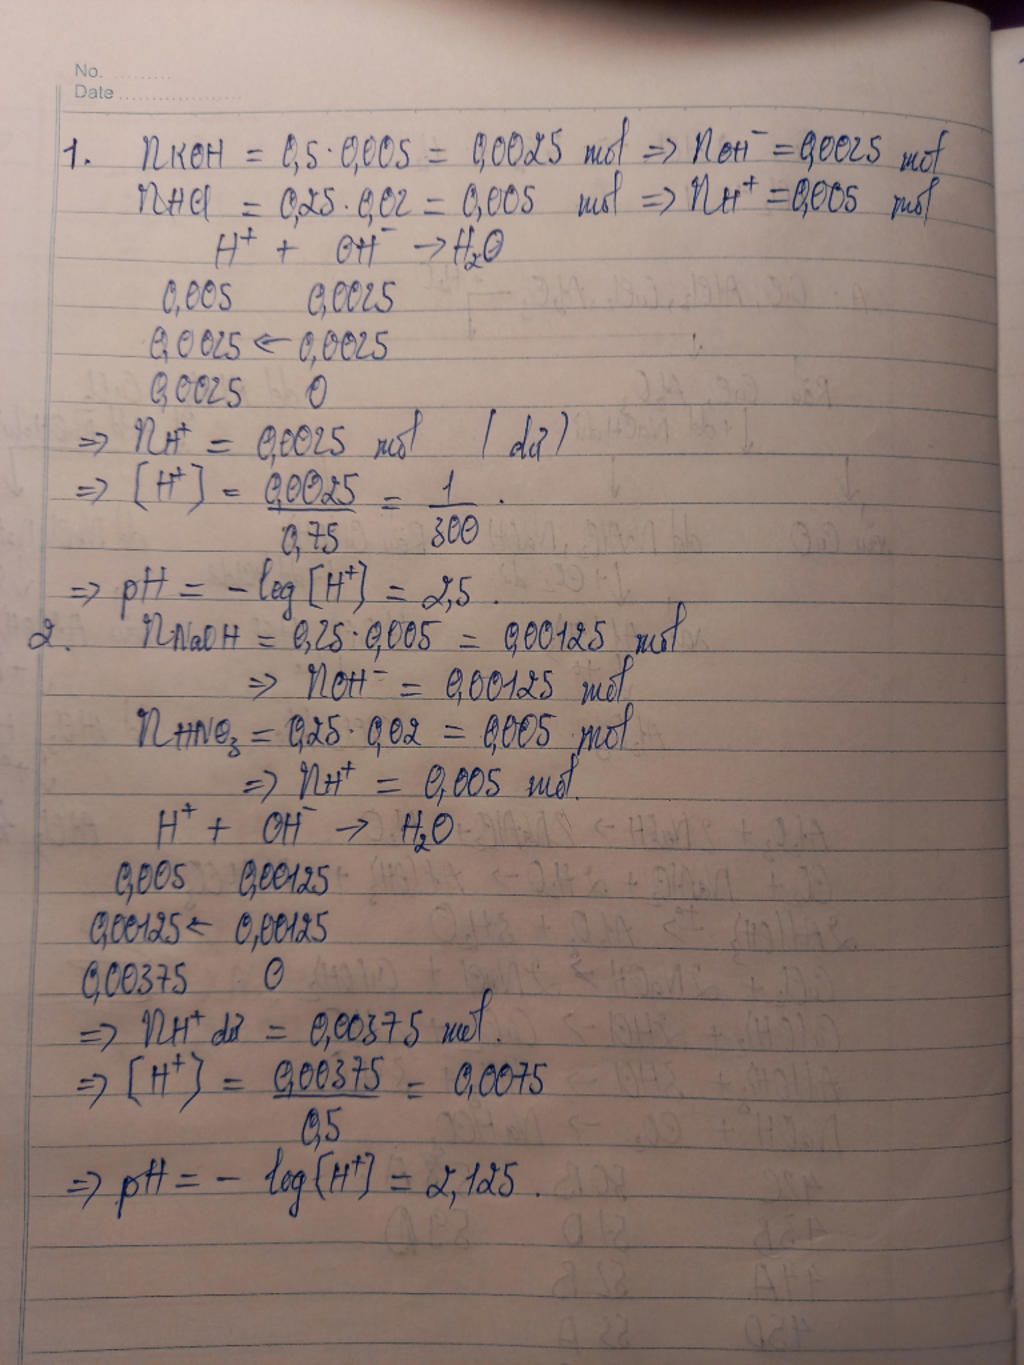 No. ..........
Date ....................
1. nKOH = 0,5 · 0,005 = 0,0025 mol => nOH⁻ = 0,0025 mol
nHCl = 0,25 · 0,02 = 0,005 mol => nH⁺ = 0,005 mol
H⁺ + OH⁻ → H₂O
0,005 0,0025
0,0025 ← 0,0025
0,0025 0
=> nH⁺ = 0,0025 mol (dư)
=> [H⁺] = 0,0025/0,75 = 1/300.
=> pH = - log[H⁺] = 2,5.
2. nNaOH = 0,25 · 0,005 = 0,00125 mol
=> nOH⁻ = 0,00125 mol
nHNO₃ = 0,25 · 0,02 = 0,005 mol
=> nH⁺ = 0,005 mol.
H⁺ + OH⁻ → H₂O
0,005 0,00125
0,00125 ← 0,00125
0,00375 0
=> nH⁺ dư = 0,00375 mol.
=> [H⁺] = 0,00375/0,5 = 0,0075
=> pH = - log[H⁺] = 2,125.